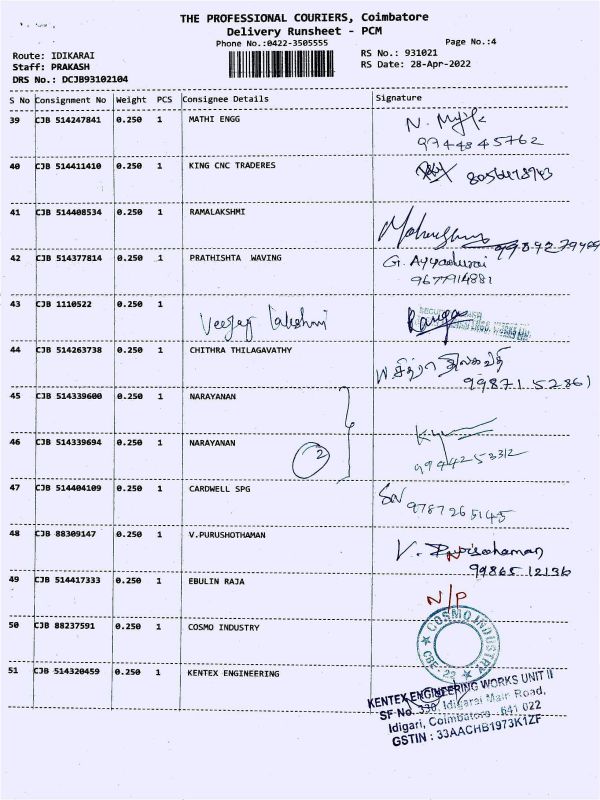 THE PROFESSIONAL COURIERS, Coimbatore
Delivery Runsheet - PCM
Phone No.:0422-3505555 Page No.:4
Route: IDIKARAI RS No.: 931021
Staff: PRAKASH RS Date: 28-Apr-2022
DRS No.: DCJB93102104
S No Consignment No Weight PCS Consignee Details Signature
39 CJB 514247841 0.250 1 MATHI ENGG
9744845762
40 CJB 514411410 0.250 1 KING CNC TRADERES
41 CJB 514408534 0.250 1 RAMALAKSHMI
42 CJB 514377814 0.250 1 PRATHISHTA WAVING G. Ayyadurai
9677914881
43 CJB 1110522 0.250 1
Veejay lakshmi Ranga
44 CJB 514263738 0.250 1 CHITHRA THILAGAVATHY
99871 52861
45 CJB 514339600 0.250 1 NARAYANAN
46 CJB 514339694 0.250 1 NARAYANAN
2 9944253312
47 CJB 514404109 0.250 1 CARDWELL SPG SN
9787265145
48 CJB 88309147 0.250 1 V.PURUSHOTHAMAN
99865 12136
49 CJB 514417333 0.250 1 EBULIN RAJA N/P
50 CJB 88237591 0.250 1 COSMO INDUSTRY COSMO INDUSTRY
CBE - 22
51 CJB 514320459 0.250 1 KENTEX ENGINEERING KENTEX ENGINEERING WORKS UNIT II
SF No. 330, Idigarai Main Road,
Idigari, Coimbatore - 641 022
GSTIN : 33AACHB1973K1ZF